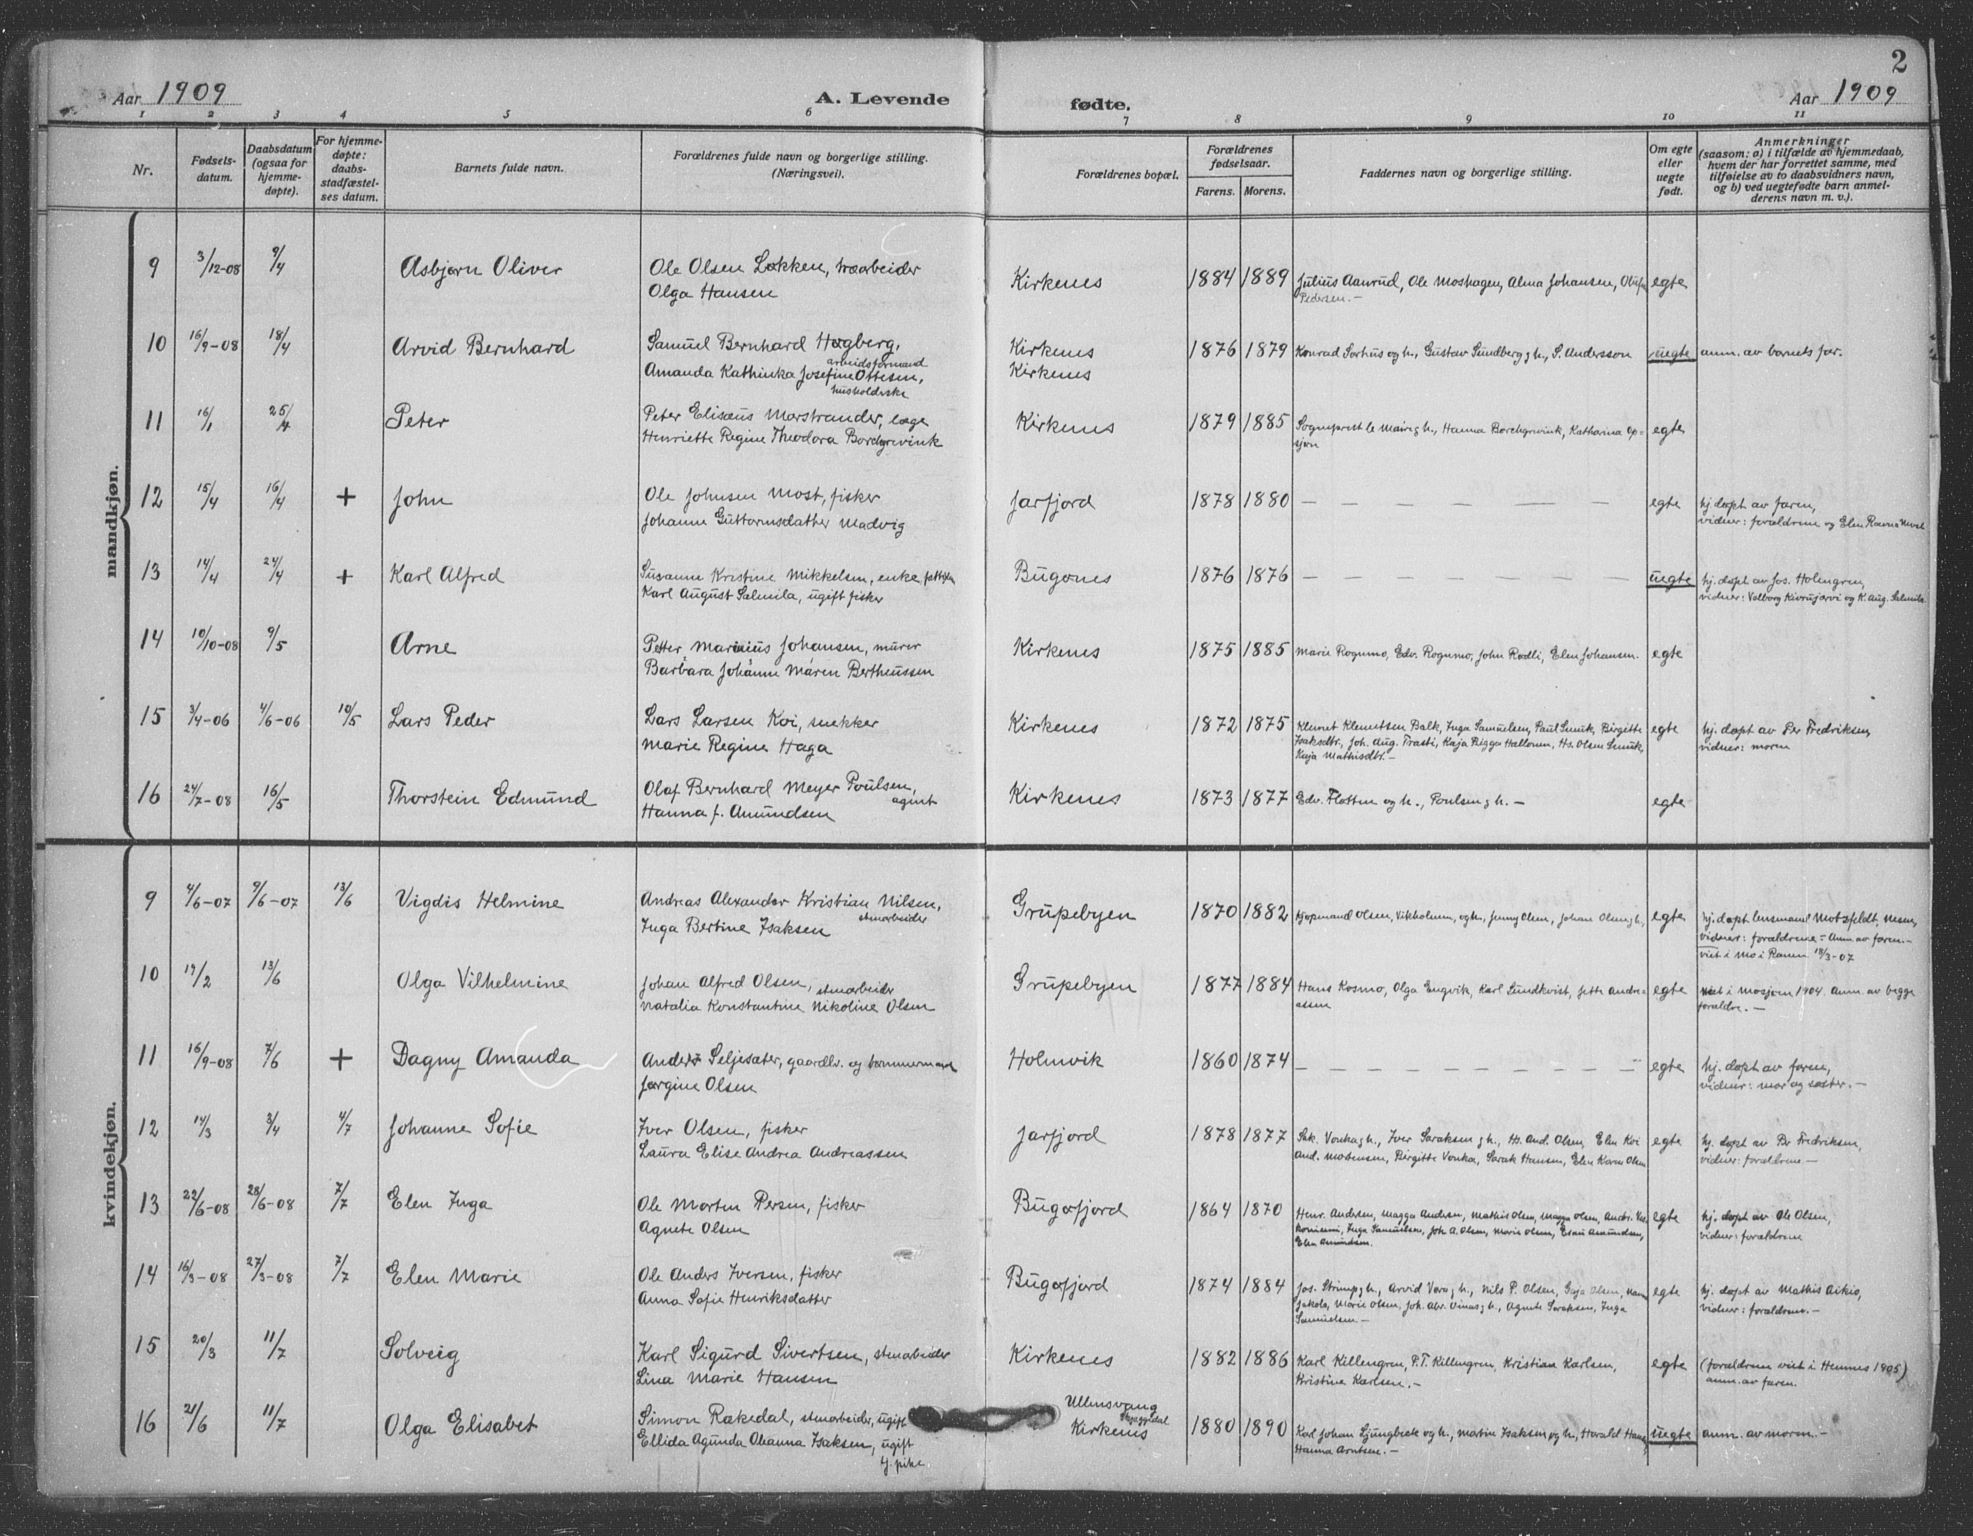 2
Aar 1909 A. Levende fødte. Aar 1909
1 2 3 4 5 6 7 8 9 10 11
Nr. Fødsels-datum. Daabsdatum (ogsaa for hjemme-døpte). For hjemme-døpte: daabs-stadfæstel-ses datum. Barnets fulde navn. Forældrenes fulde navn og borgerlige stilling. (Næringsvei). Forældrenes bopæl. Forældrenes fødselsaar. Farens. Morens. Faddernes navn og borgerlige stilling. Om egte eller uegte født. Anmerkninger (saasom: a) i tilfælde av hjemmedaab, hvem der har forrettet samme, med tilføielse av to daabsvidners navn, og b) ved uegtefødte barn anmel-derens navn m. v.).
mandkjøn.
9 3/12-08 9/4 Asbjørn Oliver Ole Olsen Løkken, træarbeider Kirkenes 1884 1889 Julius Aanrud, Ole Moshagen, Alma Johansen, egte
Olga Hansen Pedersen.—
10 16/9-08 18/4 Arvid Bernhard Samuel Bernhard Høgberg, arbeidsformand Kirkenes 1876 1879 Konrad Sørhus og h., Gustav Sundberg g h., S. Andersson uegte anm. av barnets far.
Amanda Kathinka Josefine Ottesen, husholderske Kirkenes
11 16/1 25/4 Peter Peter Elisæus Marstrander, læge Kirkenes 1879 1885 Sogneprest le Maire g h., Hanna Borchgrevink, Katharina Op=sjøn egte
Henriette Regine Theodora Borchgrevink
12 15/4 16/4 + John Ole Johnsen Most, fisker Jarfjord 1878 1880 — — — — — egte hj. døpt av faren,
Johanne Guttormsdatter Madvig vidner: forældrene og Elen Ravna Most
13 14/4 24/4 + Karl Alfred Susanne Kristine Mikkelsen, enke Bugønes 1876 1876 — — — — — uegte hj. døpt av Jos. Holmgren,
Karl August Salmila, ugift fisker vidner: Valborg Kivrujærvi og K. Aug. Salmila.
14 10/10-08 9/5 Arne Petter Marinius Johansen, murer Kirkenes 1875 1885 Marie Rognmo, Edv. Rognmo, John Rødli, Elen Johansen. egte
Barbara Johanne Maren Bertheussen
15 3/4-06 4/6-06 10/5 Lars Peder Lars Larsen Koi, snekker Kirkenes 1872 1875 Klemet Klemetsen Balk, Inga Samuelsen, Paul Smuk, Birgitte egte hj. døpt av Per Fredriksen,
Marie Regine Haga Isaksdtr., Joh. Aug. Trasti, Kaja Bigga Hallonen, Hs. Olsen Smuk, vidner: moren
Kaja Mathisdtr.—
16 24/7-08 16/5 Thorstein Edmund Olaf Bernhard Meyer Poulsen, agent Kirkenes 1873 1877 Edv. Flotten og h., Poulsen g h.— egte
Hanna f. Amundsen
kvindekjøn.
9 4/6-07 9/6-07 13/6 Vigdis Helmine Andreas Alexander Kristian Nilsen, stenarbeider Grubebyen 1870 1882 Kjøpmand Olsen, Vikholmen, og h., Jenny Olsen, Johan Olsen g h., egte hj. døpt lensmand Motzfeldt, Nesna,
Inga Bertine Isaksen vidner: forældrene.— Anm. av faren.—
viet i Mo i Ranen 18/3-07
10 19/2 13/6 Olga Vilhelmine Johan Alfred Olsen, stenarbeider Grubebyen 1877 1884 Hans Kosmo, Olga Engvik, Karl Lundkvist, Jette Andre=assen egte viet i Mosjøen 1904. Anm. av begge
Natalia Konstantine Nikoline Olsen forældre.—
11 16/9-08 7/6 + Dagny Amanda Anders Seljesæter, gaardbr. og tømmermand Holmvik 1860 1874 — — — — — egte hj. døpt av faren,
Jørgine Olsen vidner: mor og søster.—
12 14/3 3/4 4/7 Johanne Sofie Iver Olsen, fisker Jarfjord 1878 1877 Isk. Vonka g h., Iver Saraksen g h., Hs. And. Olsen, Elen Koi egte hj. døpt av Per Fredriksen,
Laura Elise Andrea Andreassen And. Mortensen, Birgitte Vonka, Sarak Hansen, Elen Karen Olsen vidner: forældrene—
13 22/6-08 28/6-08 7/7 Elen Inga Ole Morten Persen, fisker Bugøfjord 1864 1870 Henr. Andersen, Magga Andersen, Mathis Olsen, Magga Olsen, Andr. egte hj. døpt av Ole Olsen,
Agnete Olsen Inga Samuelsen, Joh. A. Olsen, Marie Olsen, Esau Amundsen, vidner: forældrene
Elen Amundsen.
14 16/3-08 27/3-08 7/7 Elen Marie Ole Anders Iversen, fisker Bugøfjord 1874 1884 Jos. Strimp g h., Arvid Vara g h., Nils P. Olsen, Gaja Olsen, egte hj. døpt av Mathis Aikio,
Anna Sofie Henriksdatter Jakola, Marie Olsen, Joh. Abr. Vinas g h., Agnete Saraksen, Inga vidner: forældrene.—
Samuelsen—
15 20/3 11/7 Solveig Karl Sigurd Sivertsen, stenarbeider Kirkenes 1882 1886 Karl Killengren, P.T. Killengren, Kristian Karlsen, egte (forældrene viet i Hemnes 1905)
Lina Marie Hansen Kristine Karlsen.— anm. av faren.
16 21/6 11/7 Olga Elisabet Simon Rakedal, stenarbeider, ugift Ullensvang Skjæggedal 1880 1890 Karl Johan Ljungbeck og h., Martin Isaksen og h., Harald uegte anm. av moren.—
Ellida Agunda Ohanna Isaksen, ugift tj. pike Kirkenes Hanna Arntsen.—